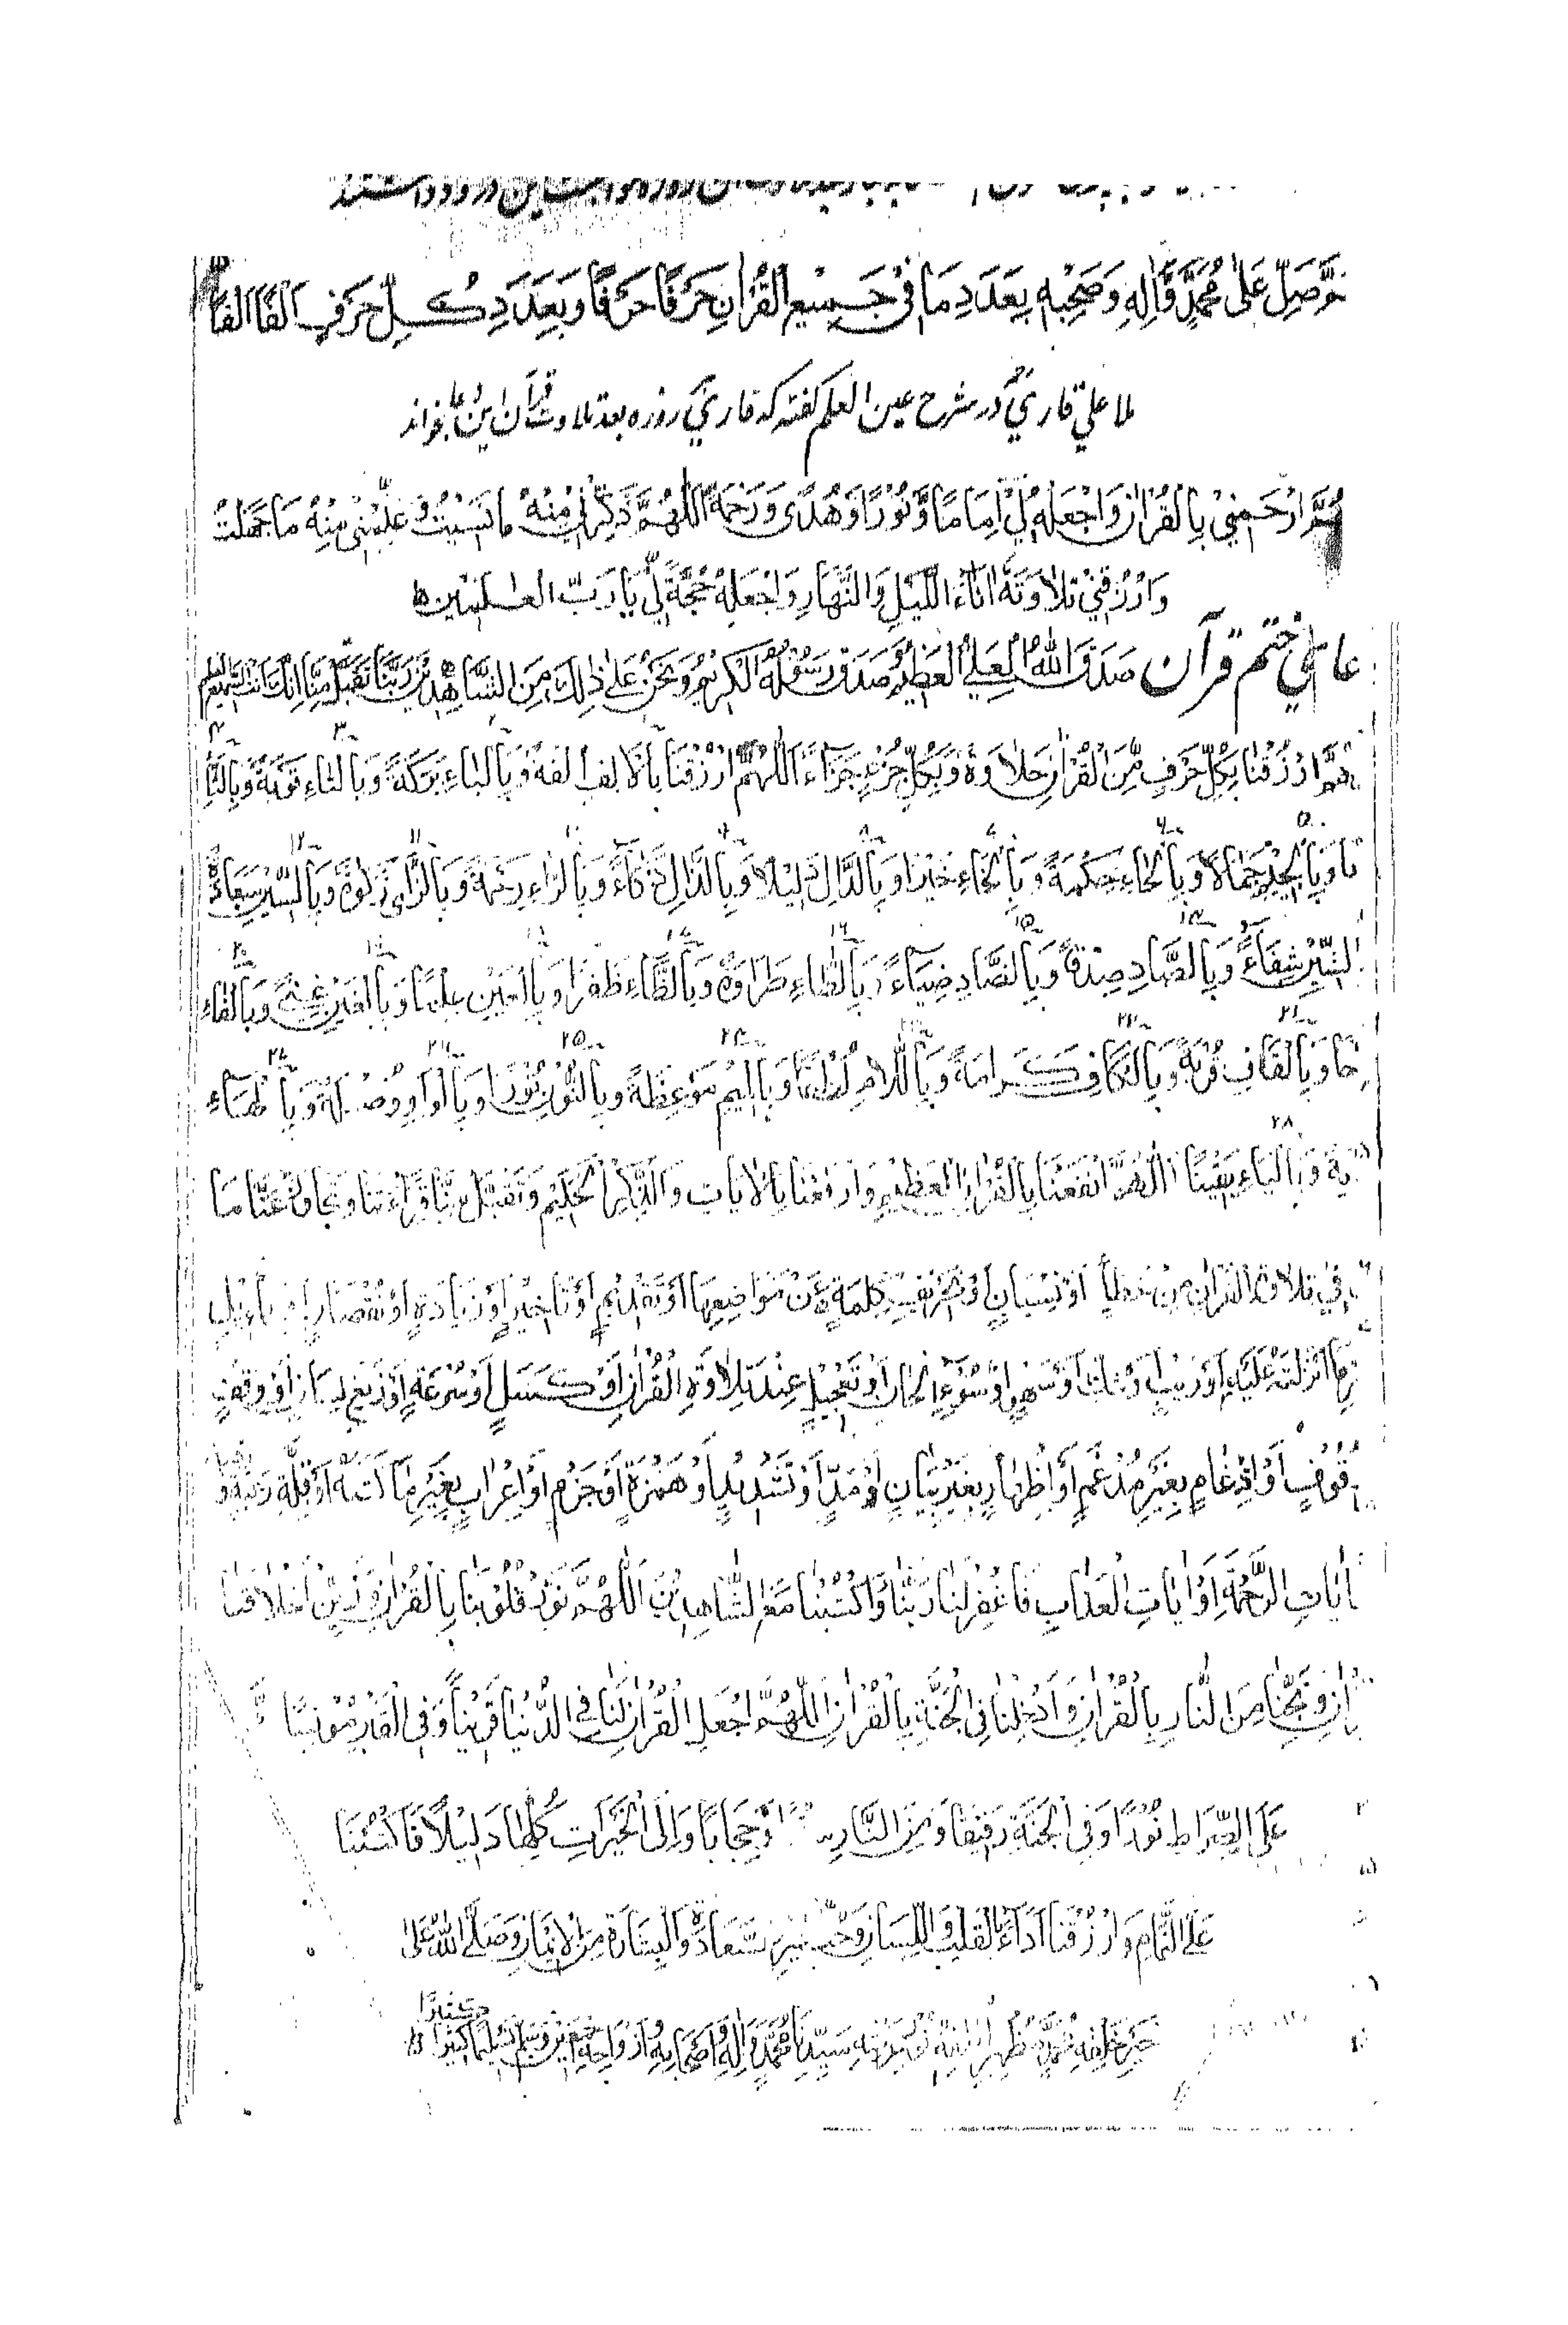 این درود داشتند
صَلِّ عَلٰی مُحَمَّدٍ وَّاٰلِهٖ وَصَحْبِهٖ بِعَدَدِ مَا فِیْ جَمِیْعِ الْقُرْاٰنِ حَرْفًا حَرْفًا وَبِعَدَدِ كُلِّ حَرْفٍ اَلْفًا اَلْفًا
ملا علی قاری در شرح عین العلم گفته که قاری روزه بعد تلاوت قرآن این دعا بخواند
ارْحَمْنِیْ بِالْقُرْاٰنِ وَاجْعَلْهُ لِیْ اِمَامًا وَّنُوْرًا وَّهُدًی وَرَحْمَةً اَللّٰهُمَّ ذَكِّرْنِیْ مِنْهُ مَا نَسِیْتُ وَعَلِّمْنِیْ مِنْهُ مَا جَهِلْتُ
وَارْزُقْنِیْ تِلَاوَتَهٗ اٰنَآءَ اللَّیْلِ وَالنَّهَارِ وَاجْعَلْهُ حُجَّةً لِّیْ یَا رَبَّ الْعٰلَمِیْنَ
ختم قرآن صَدَقَ اللّٰهُ الْعَلِیُّ الْعَظِیْمُ وَصَدَقَ رَسُوْلُهُ الْكَرِیْمُ وَنَحْنُ عَلٰی ذٰلِكَ مِنَ الشَّاهِدِیْنَ رَبَّنَا تَقَبَّلْ مِنَّا اِنَّكَ اَنْتَ السَّمِیْعُ الْعَلِیْمُ
ارْزُقْنَا بِكُلِّ حَرْفٍ مِّنَ الْقُرْاٰنِ حَلَاوَةً وَّبِكُلِّ جُزْءٍ جَزَآءً اَللّٰهُمَّ ارْزُقْنَا بِالْاَلِفِ اُلْفَةً وَّبِالْبَاءِ بَرَكَةً وَبِالتَّاءِ تَوْبَةً وَّبِالثَّاءِ
وَبِالْجِیْمِ جَمَالًا وَّبِالْحَاءِ حِكْمَةً وَبِالْخَاءِ خَیْرًا وَبِالدَّالِ دَلِیْلًا وَّبِالذَّالِ ذَكَاءً وَبِالرَّاءِ رَحْمَةً وَبِالزَّایِ زَكٰوةً وَبِالسِّیْنِ سَعَادَةً
الشِّیْنِ شِفَآءً وَبِالصَّادِ صِدْقًا وَبِالضَّادِ ضِیَآءً وَبِالطَّاءِ طَرَاوَةً وَبِالظَّاءِ ظَفَرًا وَبِالْعَیْنِ عِلْمًا وَبِالْغَیْنِ غِنًی وَبِالْفَاءِ
وَبِالْقَافِ قُرْبَةً وَبِالْكَافِ كَرَامَةً وَبِاللَّامِ لُطْفًا وَبِالْمِیْمِ مَوْعِظَةً وَبِالنُّوْنِ نُوْرًا وَبِالْوَاوِ وُصْلَةً وَبِالْهَاءِ
وَبِالْیَاءِ یَقِیْنًا اَللّٰهُمَّ انْفَعْنَا بِالْقُرْاٰنِ الْعَظِیْمِ وَارْفَعْنَا بِالْاٰیَاتِ وَالذِّكْرِ الْحَكِیْمِ وَتَقَبَّلْ مِنَّا قِرَاءَتَنَا وَتَجَاوَزْ عَنَّا مَا
فِیْ تِلَاوَةِ الْقُرْاٰنِ مِنْ خَطَأٍ اَوْ نِسْیَانٍ اَوْ تَحْرِیْفِ كَلِمَةٍ عَنْ مَّوَاضِعِهَا اَوْ تَقْدِیْمٍ اَوْ تَاخِیْرٍ اَوْ زِیَادَةٍ اَوْ نُقْصَانٍ
مَا اَنْزَلْتَهٗ عَلَیْهِ اَوْ رَیْبٍ اَوْ شَكٍّ اَوْ سَهْوٍ اَوْ سُوْءِ اِلْحَانٍ اَوْ تَعْجِیْلٍ عِنْدَ تِلَاوَةِ الْقُرْاٰنِ اَوْ كَسَلٍ اَوْ سُرْعَةٍ اَوْ زَیْغِ لِسَانٍ اَوْ وَقْفٍ
وُقُوْفٍ اَوْ اِدْغَامٍ بِغَیْرِ مُدْغَمٍ اَوْ اِظْهَارٍ بِغَیْرِ بَیَانٍ اَوْ مَدٍّ اَوْ تَشْدِیْدٍ اَوْ هَمْزَةٍ اَوْ جَزْمٍ اَوْ اِعْرَابٍ بِغَیْرِ مَا كَتَبَهٗ اَوْ قِلَّةِ رَغْبَةٍ
اٰیَاتِ الرَّحْمَةِ اَوْ اٰیَاتِ الْعَذَابِ فَاغْفِرْ لَنَا رَبَّنَا وَاكْتُبْنَا مَعَ الشَّاهِدِیْنَ اَللّٰهُمَّ نَوِّرْ قُلُوْبَنَا بِالْقُرْاٰنِ وَزَیِّنْ اَخْلَاقَنَا
وَنَجِّنَا مِنَ النَّارِ بِالْقُرْاٰنِ وَاَدْخِلْنَا فِی الْجَنَّةِ بِالْقُرْاٰنِ اَللّٰهُمَّ اجْعَلِ الْقُرْاٰنَ لَنَا فِی الدُّنْیَا قَرِیْنًا وَّفِی الْقَبْرِ مُوْنِسًا
عَلَی الصِّرَاطِ نُوْرًا وَفِی الْجَنَّةِ رَفِیْقًا وَمِنَ النَّارِ سِتْرًا وَّحِجَابًا وَاِلَی الْخَیْرَاتِ كُلِّهَا دَلِیْلًا فَاكْتُبْنَا
عَلَی التَّمَامِ وَارْزُقْنَا اَدَآءً بِالْقَلْبِ وَاللِّسَانِ وَحُبِّ الْخَیْرِ وَالسَّعَادَةِ وَالْبِشَارَةِ مِنَ الْاِیْمَانِ وَصَلَّی اللّٰهُ عَلٰی
خَیْرِ خَلْقِهٖ مُحَمَّدٍ سَیِّدِنَا مُحَمَّدٍ وَّاٰلِهٖ وَاَصْحَابِهٖ وَاَزْوَاجِهٖ اَجْمَعِیْنَ وَسَلَّمَ تَسْلِیْمًا كَثِیْرًا كَثِیْرًا